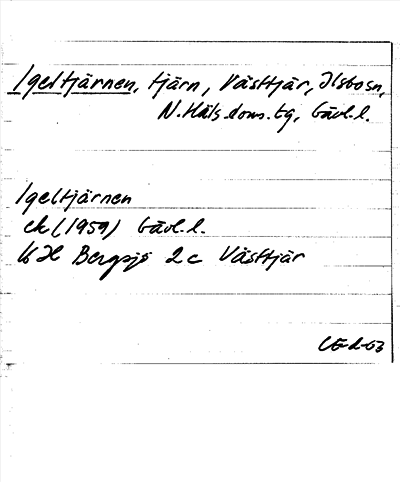 Igeltjärnen, tjärn, Västtjär, Ilsbo sn,
N. Häls. doms. tg, Gävl. l.
Igeltjärnen
ek (1959) Gävl. l.
16 H Bergsjö 2 c Västtjär